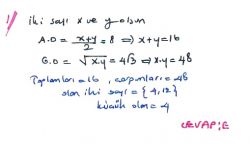 1) İki sayı x ve y olsun
A.O = x+y/2 = 8 ⟹ x+y=16
G.O = √x.y = 4√3 ⟹ x.y = 48
Toplamları = 16, çarpımları = 48
olan iki sayı = {4,12}
küçük olan = 4
CEVAP: E